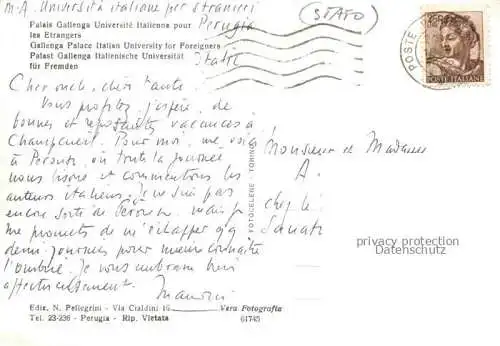 M.A. Università italiane per stranieri
Palais Gallenga Université Italienne pour
les Etrangers
Perugia
(STATO)
Gallenga Palace Italian University for Foreigners
Palast Gallenga Italienische Universität
für Fremden
POSTE
POSTE ITALIANE
Cher oncle, chère tante
Vous profitez j'espère, de
bonnes et reposantes vacances à
Pour moi, me voici
à Pérouse, où toute la journée
nous lisons et commentons les
auteurs italiens. Je ne suis pas
encore sorti de Pérouse, mais je
me promets de m'échapper qq
demi journées pour mieux connaître
l'ombrie. Je vous embrasse bien
affectueusement.
Monsieur et Madame
A.
chez le
privacy protection
Datenschutz
FOTOCELERE - TORINO
Ediz. N. Pellegrini - Via Cialdini 10
Vera Fotografia
Tel. 23-236 - Perugia - Rip. Vietata
61745